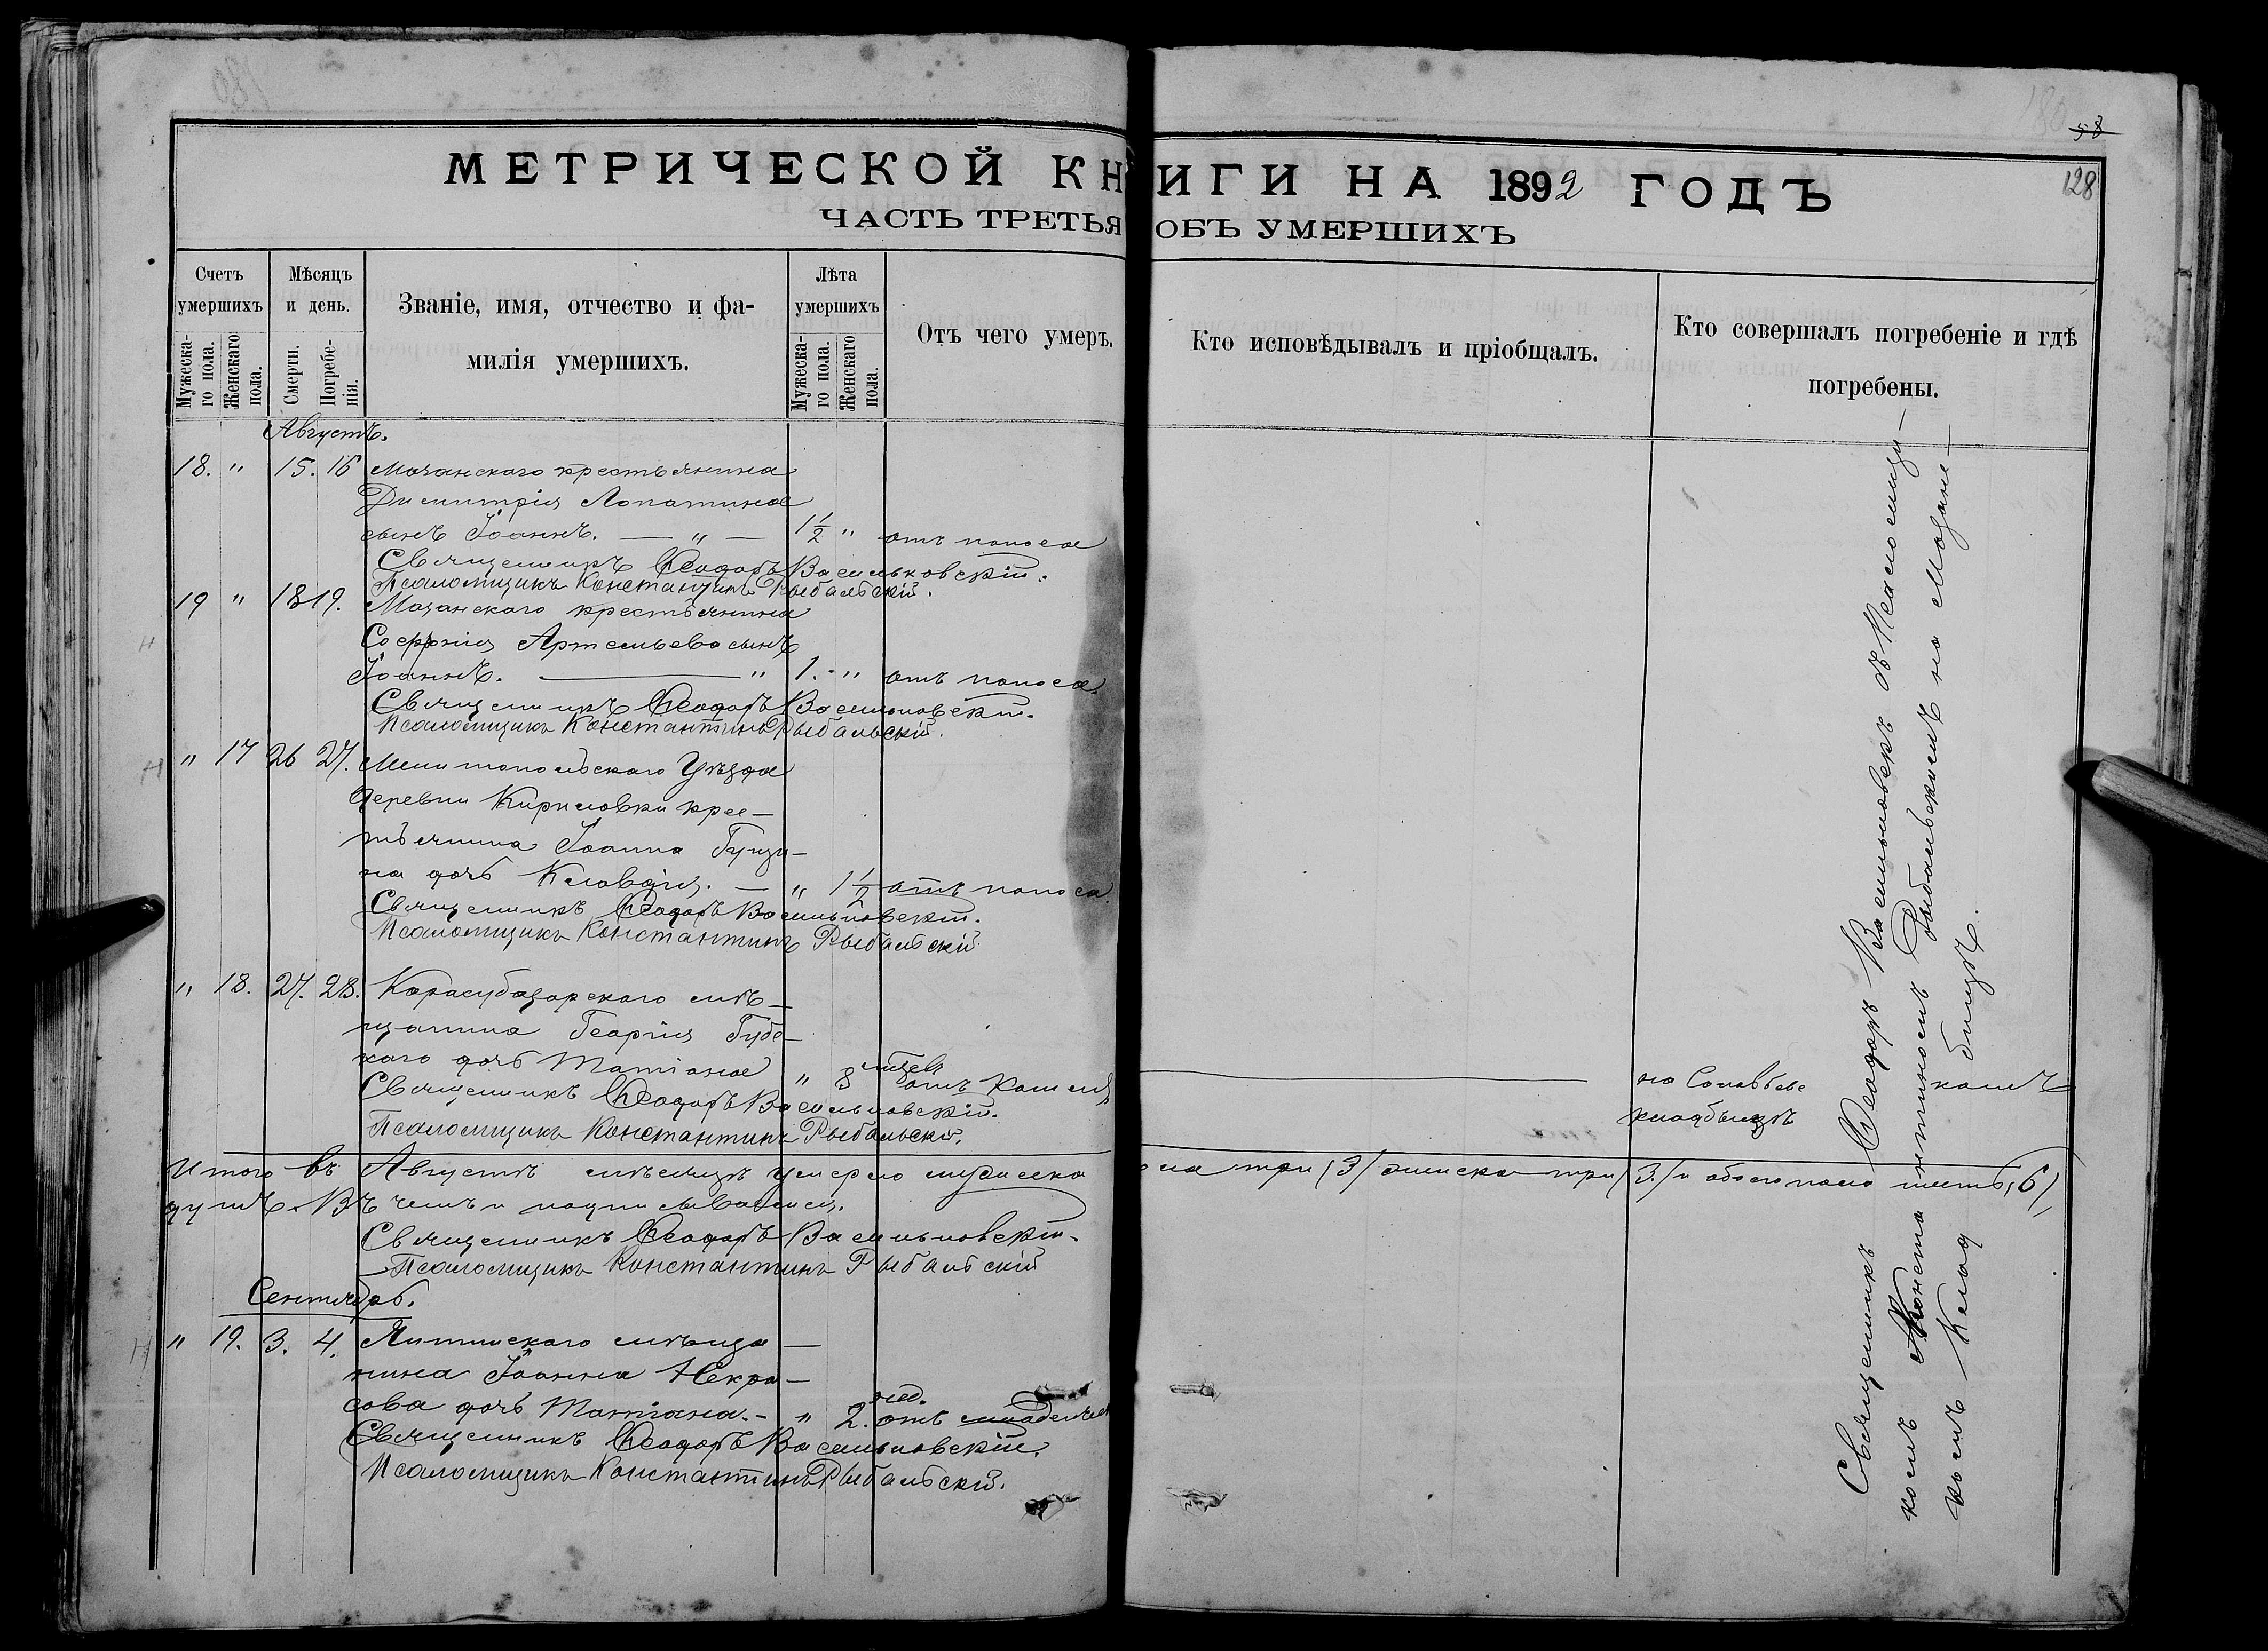 58
128
МЕТРИЧЕСКОЙ КНИГИ НА 1892 ГОДЪ
ЧАСТЬ ТРЕТЬЯ ОБЪ УМЕРШИХЪ
Счетъ умершихъ
Мужеска-го пола.
Женскаго пола.
Мѣсяцъ и день.
Смерти.
Погребе-нія.
Званіе, имя, отчество и фа-
милія умершихъ.
Лѣта умершихъ
Мужеска-го пола.
Женскаго пола.
Отъ чего умеръ.
Кто исповѣдывалъ и пріобщалъ.
Кто совершалъ погребеніе и гдѣ
погребены.
Августъ.
18. " 15. 16 Мазанскаго крестьянина
Димитрія Лопатина
сынъ Іоаннъ. — " — 1½ " отъ поноса
Священникъ Ѳеодоръ Васильковскій.
Псаломщикъ Константинъ Рыбальскій.
19 " 18 19. Мазанскаго крестьянина
Софронія Артемьева сынъ
Іоаннъ. — " 1. " отъ поноса.
Священникъ Ѳеодоръ Васильковскій.
Псаломщикъ Константинъ Рыбальскій.
" 17 26 27. Мелитопольскаго Уѣзда
деревни Кириловки крес-
тьянина Іоанна
на дочь Клавдія. — " 1½ отъ поноса.
Священникъ Ѳеодоръ Васильковскій.
Псаломщикъ Константинъ Рыбальскій
" 18. 27. 28. Карасубазарскаго мѣ-
щанина Георгія Губс-
каго дочь Татіана " 8 мѣсяц. отъ кашля
на кладбищѣ
Священникъ Ѳеодоръ Васильковскій.
Псаломщикъ Константинъ Рыбальскій.
Итого въ Августѣ мѣсяцѣ умерло мужеска пола три (3) женска три (3) и обоего пола шесть (6)
душъ. Въ чемъ и подписываемся.
Священникъ Ѳеодоръ Васильковскій.
Псаломщикъ Константинъ Рыбальскій
Сентябрь.
" 19. 3. 4. Ялтинскаго мѣща-
нина Іоанна Некра-
сова дочь Татіана. - " 2. нед. отъ младенчес
Священникъ Ѳеодоръ Васильковскій.
Псаломщикъ Константинъ Рыбальскій.
Священникъ Ѳеодоръ Васильковскъ съ Псаломщи-
комъ Константиномъ Рыбальскимъ на Мазанс-
комъ Клад бищѣ.